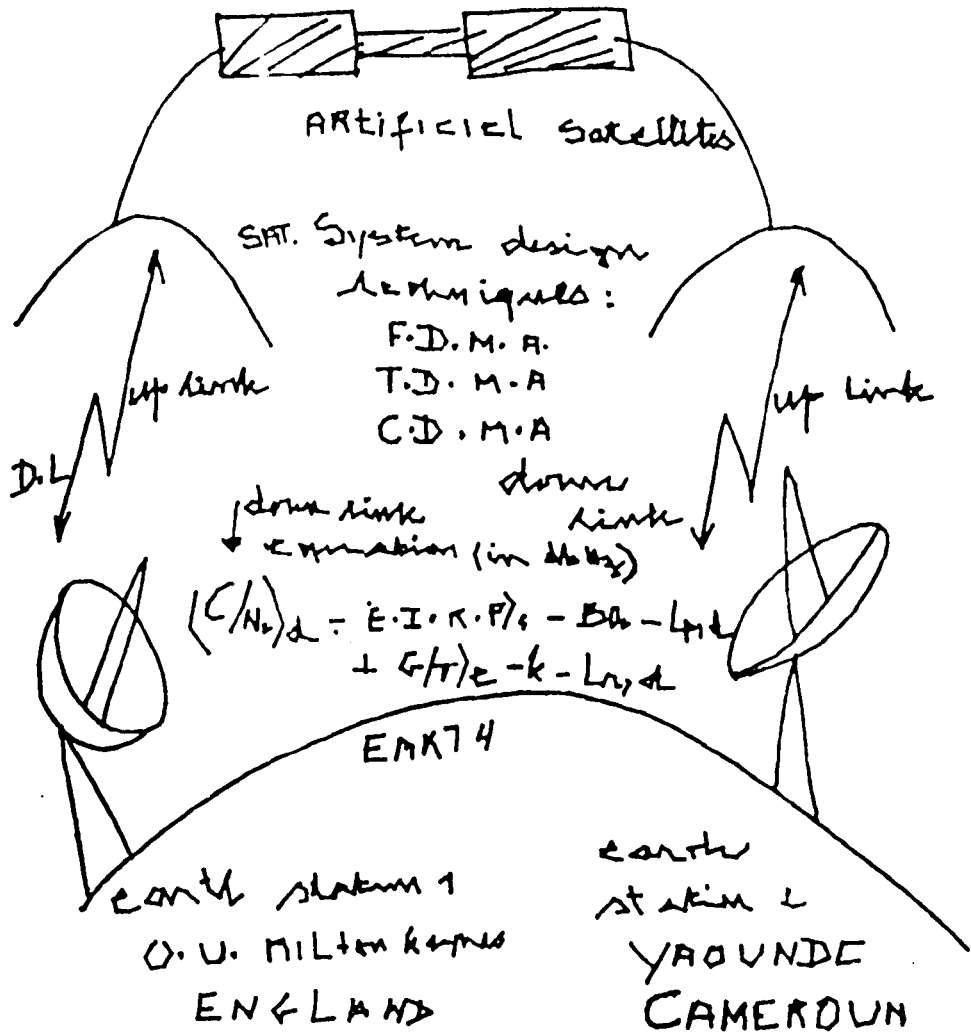 ARtificiel Satellites
SAT. System design
techniques :
F.D.M.A.
T.D.M.A
C.D.M.A
up link
up link
D.L
down
link
down link
equation (in dbHz)
(C/N₀)d = E.I.R.P)s - BO₀ - Lp,d
+ G/T)e - k - Ln,d
EARTH
earth station 1
O.U. MILton keynes
ENGLAND
earth
station 2
YAOUNDE
CAMEROUN